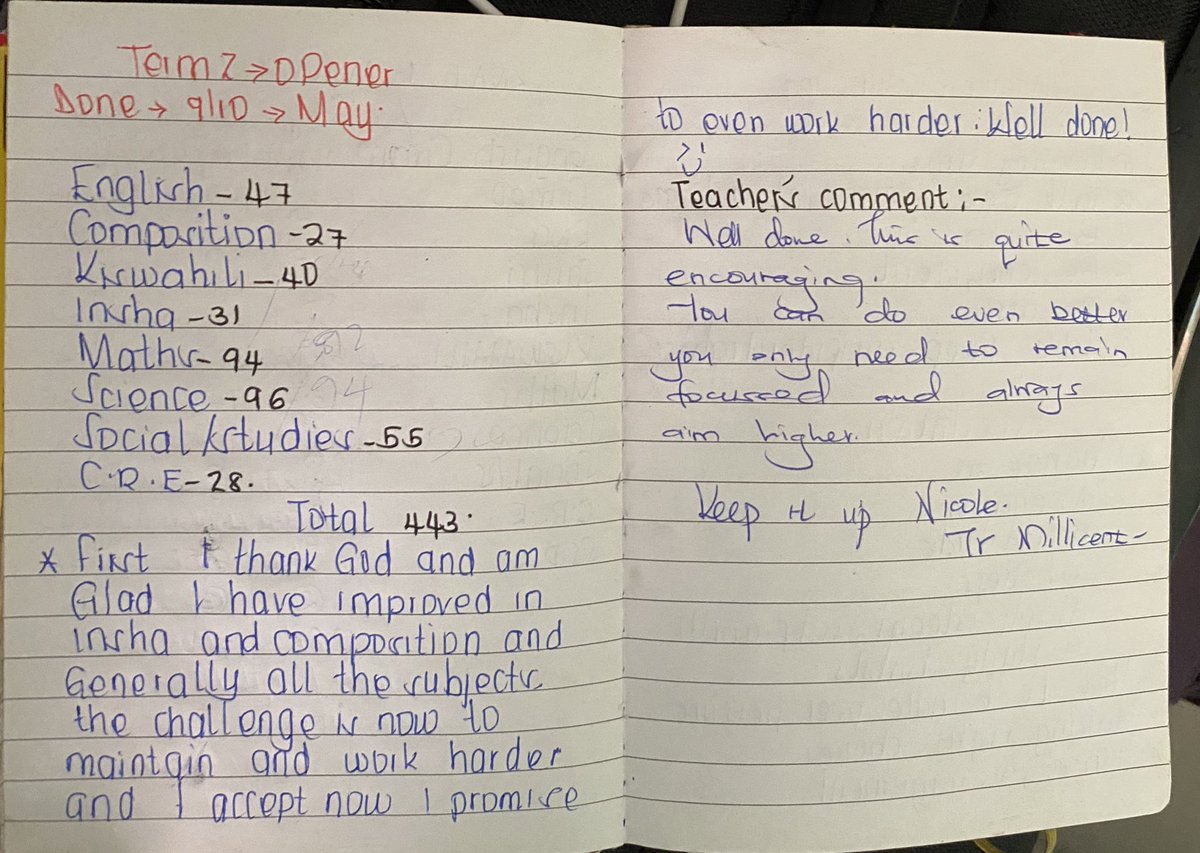 Term 2 → Opener
Done → 9/10 → May.
English - 47
Composition - 27
Kiswahili - 40
Insha - 31
Maths - 94
Science - 96
Social studies - 55
C.R.E - 28.
Total 443.
* First I thank God and am
Glad I have improved in
Insha and composition and
Generally all the subjects
the challenge is now to
maintain and work harder
and I accept now I promise
to even work harder. Well done!
Teacher's comment:-
Well done. This is quite
encouraging.
You can do even better
you only need to remain
focussed and always
aim higher.
Keep it up Nicole.
Tr Millicent-